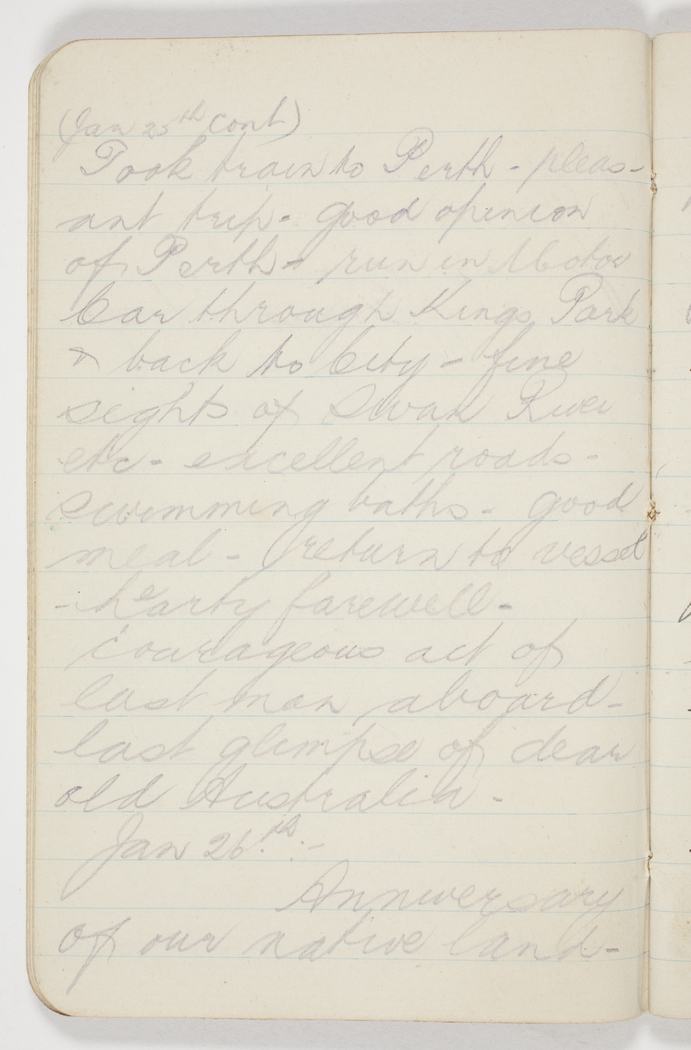 (Jan 25th cont)
Took train to Perth - pleas-
ant trip - good opinion
of Perth - run in Motor
Car through Kings Park
& back to City - fine
sights of Swan River
etc - excellent roads -
swimming baths - good
meal - return to vessel
- hearty farewell -
courageous act of
last man aboard -
last glimpse of dear
old Australia -
Jan 26th :-
Anniversary
of our native land -